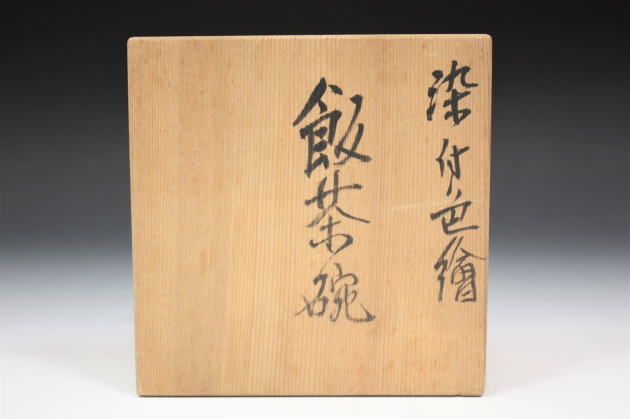 染付色繪
飯茶碗